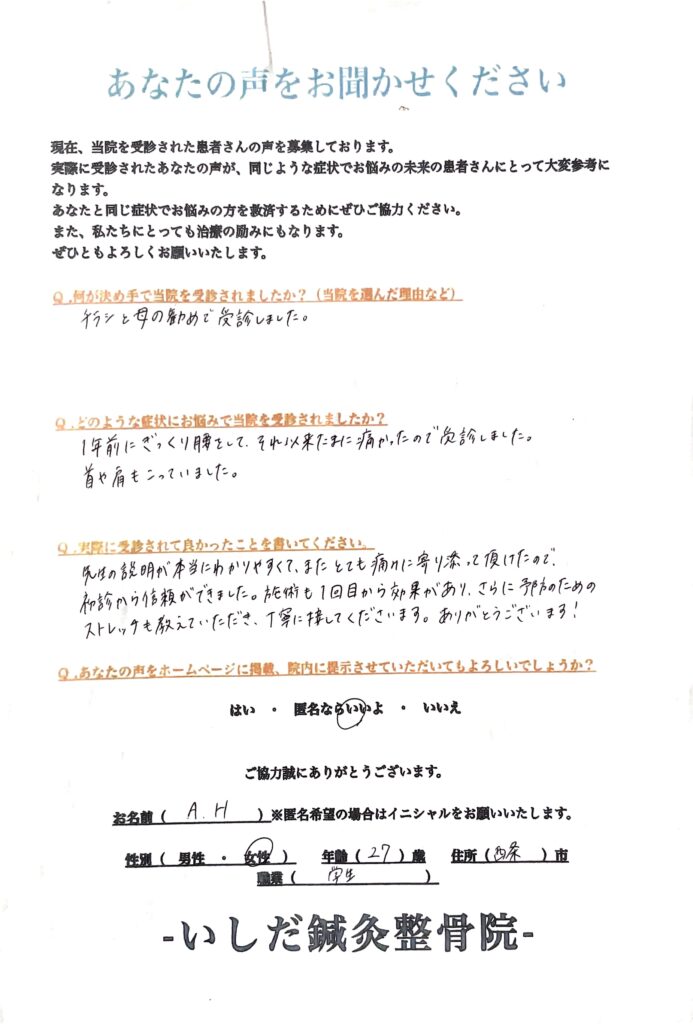 あなたの声をお聞かせください
現在、当院を受診された患者さんの声を募集しております。
実際に受診されたあなたの声が、同じような症状でお悩みの未来の患者さんにとって大変参考に
なります。
あなたと同じ症状でお悩みの方を救済するためにぜひご協力ください。
また、私たちにとっても治療の励みにもなります。
ぜひともよろしくお願いいたします。
Q.何が決め手で当院を受診されましたか？（当院を選んだ理由など）
チラシと母の勧めで受診しました。
Q.どのような症状にお悩みで当院を受診されましたか？
1年前にぎっくり腰をして、それ以来たまに痛かったので受診しました。
首や肩もこっていました。
Q.実際に受診されて良かったことを書いてください。
先生の説明が本当にわかりやすくて、またとても痛みに寄り添って頂けたので、
初診から信頼ができました。施術も1回目から効果があり、さらに予防のための
ストレッチも教えていただき、丁寧に接してくださいます。ありがとうございます!
Q.あなたの声をホームページに掲載、院内に提示させていただいてもよろしいでしょうか？
はい ・ 匿名ならいいよ ・ いいえ
ご協力誠にありがとうございます。
お名前（ A.H ）※匿名希望の場合はイニシャルをお願いいたします。
性別（ 男性 ・ 女性 ） 年齢（27）歳 住所（西条 ）市
職業（ 学生 ）
-いしだ鍼灸整骨院-